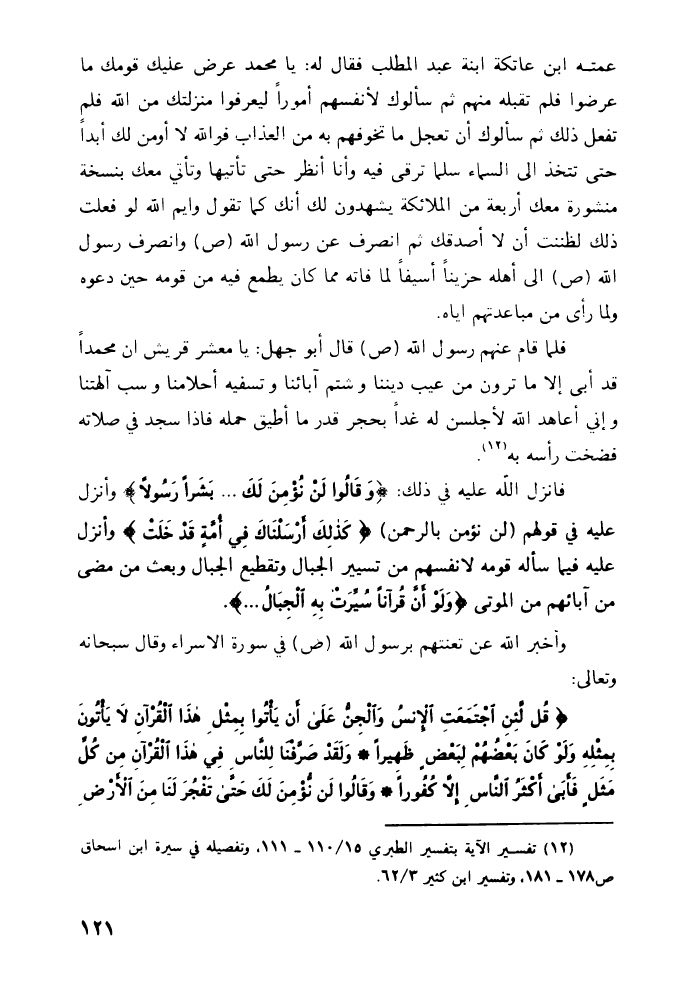 عمتـه ابن عاتكة ابنة عبد المطلب فقال له: يا محمد عرض عليك قومك ما
عرضوا فلم تقبله منهم ثم سألوك لأنفسهم أموراً ليعرفوا منزلتك من الله فلم
تفعل ذلك ثم سألوك أن تعجل ما تخوفهم به من العذاب فوالله لا أومن لك أبداً
حتى تتخذ الى السماء سلما ترقى فيه وأنا أنظر حتى تأتيها وتأتي معك بنسخة
منشورة معك أربعة من الملائكة يشهدون لك أنك كما تقول وايم الله لو فعلت
ذلك لظننت أن لا أصدقك ثم انصرف عن رسول الله (ص) وانصرف رسول
الله (ص) الى أهله حزيناً أسيفاً لما فاته مما كان يطمع فيه من قومه حين دعوه
ولما رأى من مباعدتهم اياه.
فلما قام عنهم رسول الله (ص) قال أبو جهل: يا معشر قريش ان محمداً
قد أبى إلا ما ترون من عيب ديننا وشتم آبائنا وتسفيه أحلامنا وسب آلهتنا
وإني أعاهد الله لأجلسن له غداً بحجر قدر ما أطيق حمله فاذا سجد في صلاته
فضخت رأسه به(١٢).
فانزل اللّه عليه في ذلك: ﴿وَقَالُوا لَنْ نُؤْمِنَ لَكَ ... بَشَراً رَسُولاً﴾ وأنزل
عليه في قولهم (لن نؤمن بالرحمن) ﴿ كَذٰلِكَ أَرْسَلْنَاكَ فِي أُمَّةٍ قَدْ خَلَتْ ﴾ وأنزل
عليه فيما سأله قومه لانفسهم من تسيير الجبال وتقطيع الجبال وبعث من مضى
من آبائهم من الموتى ﴿وَلَوْ أَنَّ قُرآناً سُيِّرَتْ بِهِ ٱلْجِبَالُ...﴾.
وأخبر الله عن تعنتهم برسول الله (ص) في سورة الاسراء وقال سبحانه
وتعالى:
﴿ قُل لَّئِنِ ٱجْتَمَعَتِ ٱلْإِنسُ وَٱلْجِنُّ عَلَىٰ أَن يَأْتُوا بِمِثْلِ هٰذَا ٱلْقُرْآنِ لَا يَأْتُونَ
بِمِثْلِهِ وَلَوْ كَانَ بَعْضُهُمْ لِبَعْضٍ ظَهِيراً * وَلَقَدْ صَرَّفْنَا لِلنَّاسِ فِي هٰذَا ٱلْقُرْآنِ مِن كُلِّ
مَثَلٍ فَأَبَىٰ أَكْثَرُ ٱلنَّاسِ إِلَّا كُفُوراً * وَقَالُوا لَن نُّؤْمِنَ لَكَ حَتَّىٰ تَفْجُرَ لَنَا مِنَ ٱلْأَرْضِ
(١٢) تفسير الآية بتفسير الطبري ١١٠/١٥ ـ ١١١، وتفصيله في سيرة ابن اسحاق
ص١٧٨ ـ ١٨١، وتفسير ابن كثير ٦٢/٣.
١٢١